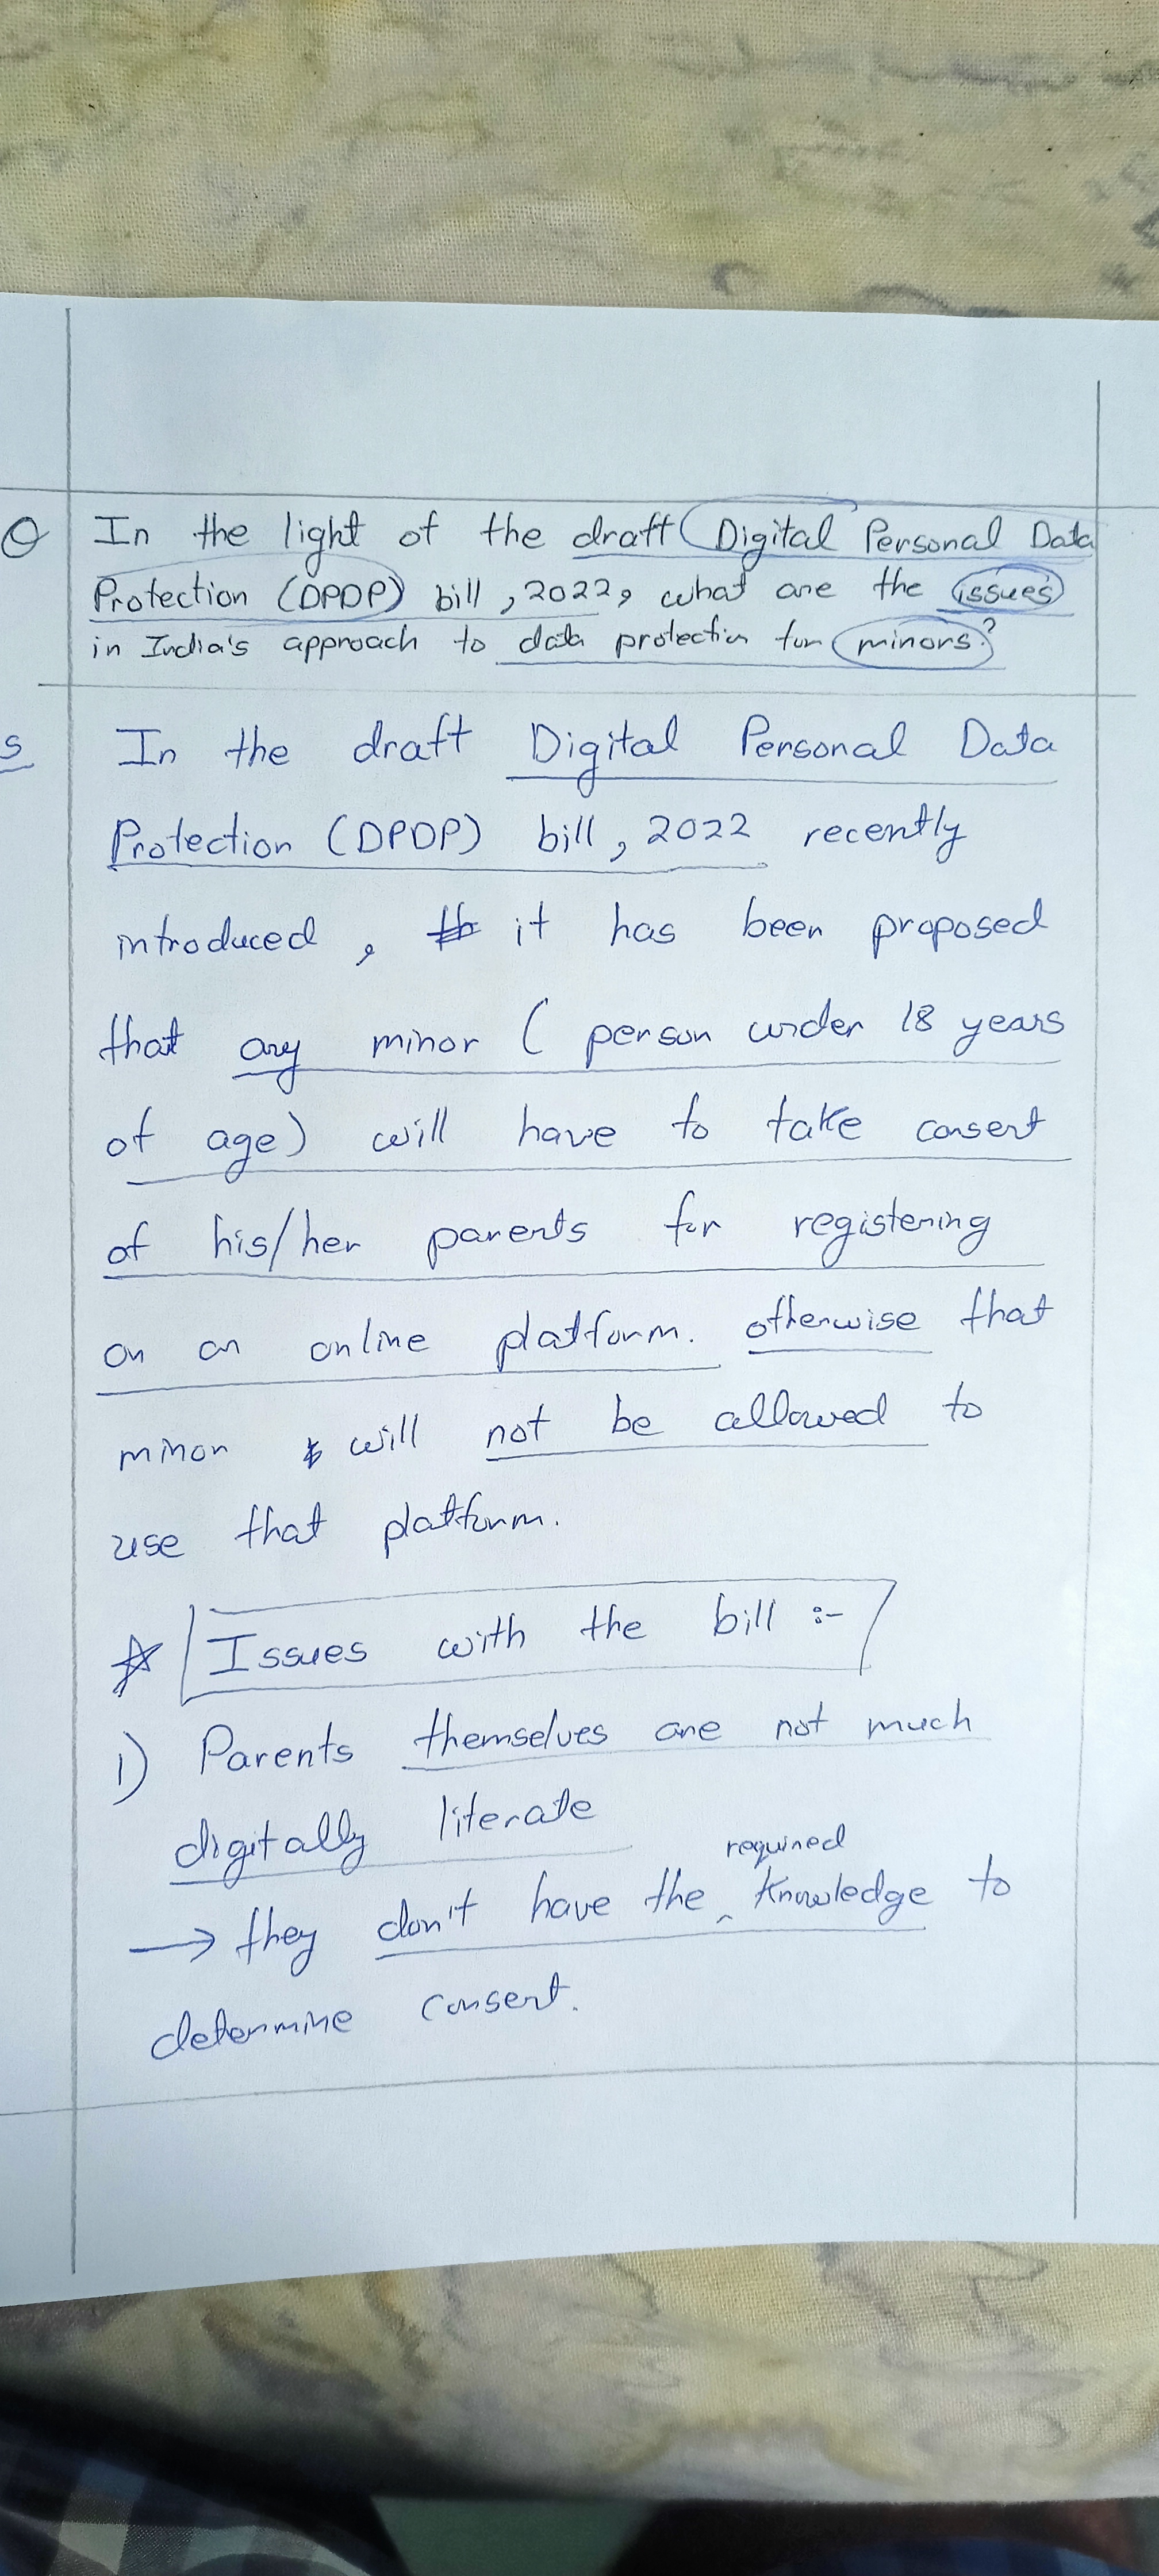 Q In the light of the draft Digital Personal Data
Protection (DPDP) bill, 2022, what are the issues
in India's approach to data protection for minors?
s In the draft Digital Personal Data
Protection (DPDP) bill, 2022 recently
introduced, it has been proposed
that any minor (person under 18 years
of age) will have to take consent
of his/her parents for registering
on an online platform. otherwise that
minor will not be allowed to
use that platform.
☆ Issues with the bill :-
1) Parents themselves are not much
digitally literate
→ they don't have the required knowledge to
determine consent.